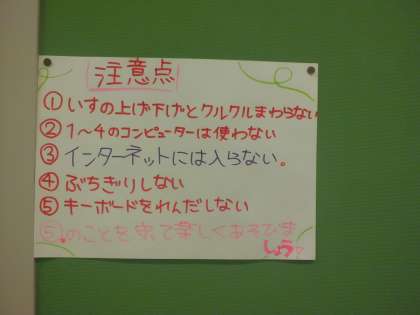 注意点
①いすの上げ下げとクルクルまわらない
②1～4のコンピューターは使わない
③インターネットには入らない。
④ぶちぎりしない
⑤キーボードをれんだしない
⑤のことを守って楽しくあそびま
しょう